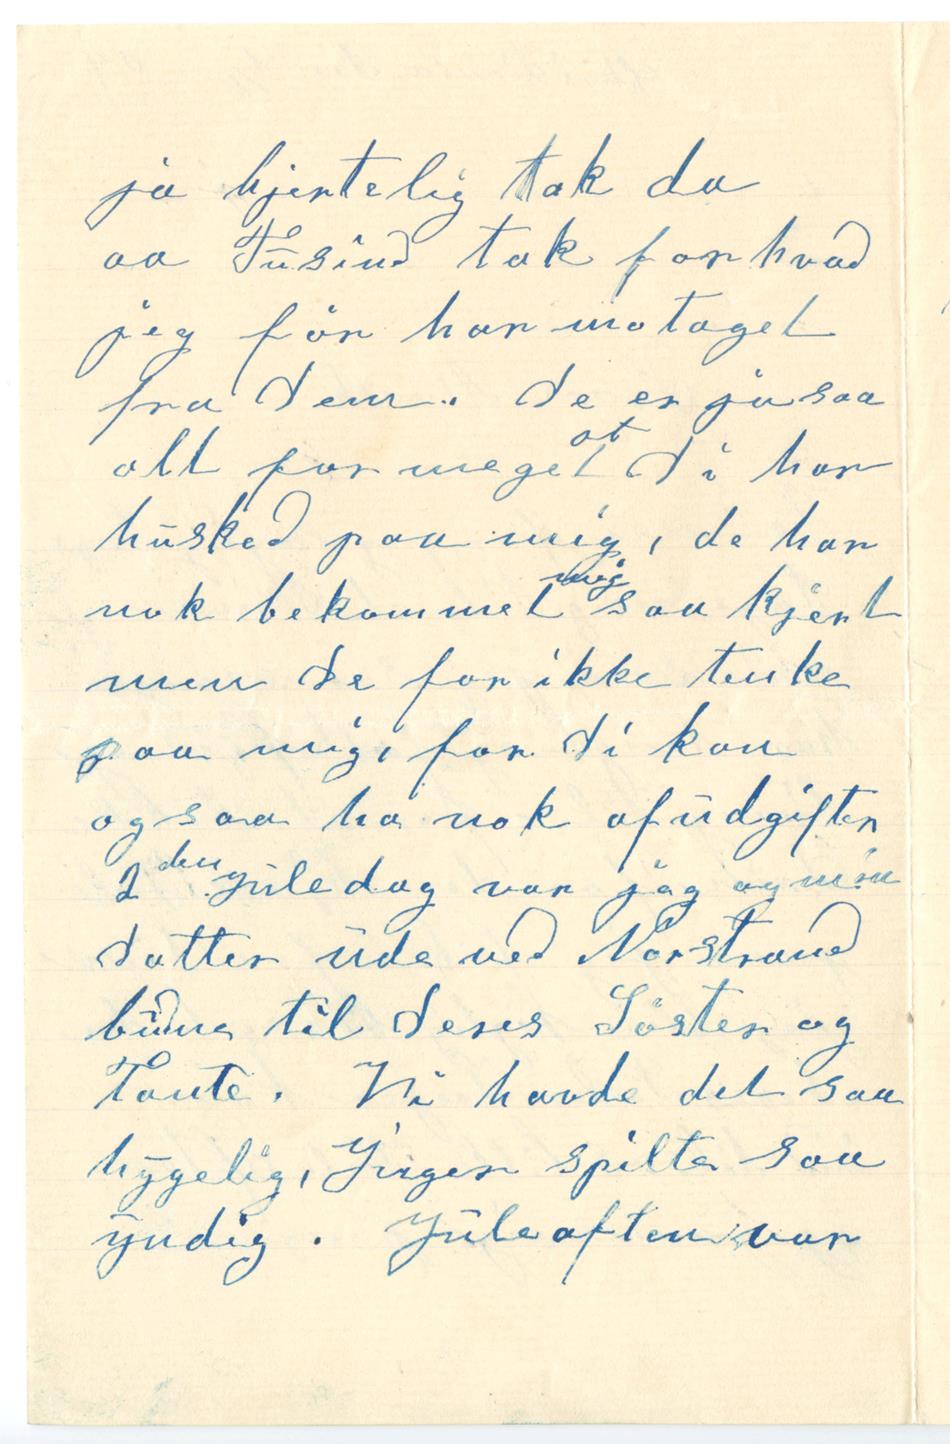 ja hjertelig tak da
aa Tusind tak for hvad
jeg för har motaget
fra Dem. De er ja saa
alt for meget at Di har
husked paa mig, de har
nok bekommet mig saa kjert
men De for ikke tenke
paa mig, for Di kan
ogsaa ha nok af udgifter
2den Juledag var jag og min
Datter ude ved Norstrand
til Deres Söster og
Tante. Vi havde det saa
hygelig, Jirgen spilte saa
yndig. Juleaften var